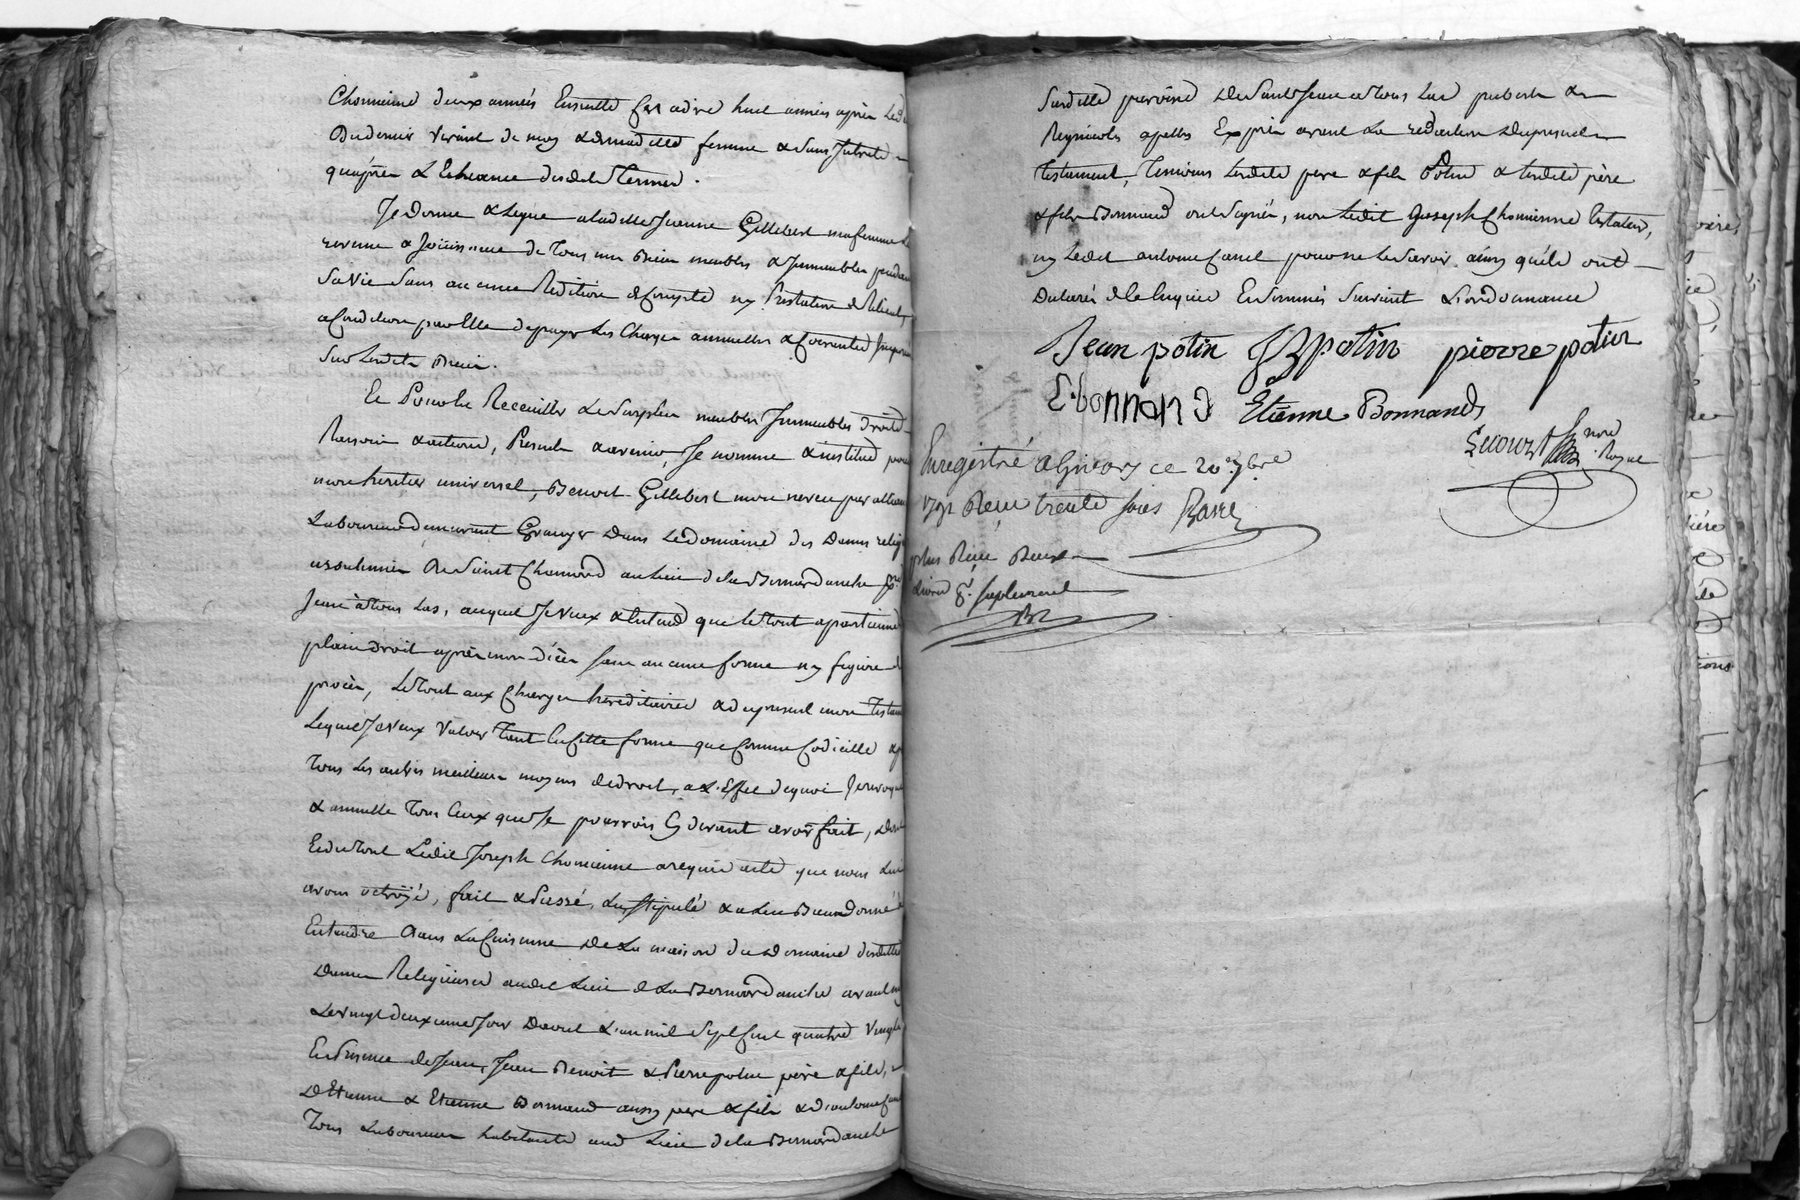 Chomienne deux années Ensuitte Est adire huit années après Led
Du dernier vivant de moy & de maditte femme & sans Intrests
qu'après L'Echeance desdits Termes.
Je donne & Legue a laditte Jeanne Gillebert ma femme Le
revenu & Jouissance de Tous mes Biens meubles & Immeubles pendant
Sa vie Sans aucune Reddition de Compte ny Prestation de Reliquat,
a Condition par Elle de payer Les Charges annuelles & Courantes Imposées
Sur Lesdits Biens.
Et Pour La Receuillir Le Surplus meubles Immeubles droits
Raisons & actions, Presents & avenir, Je nomme & institue pour
mon heritier universel, Benoit Gillebert mon neveu par alliance
Laboureur demeurant Granger Dans Le domaine des Dames relig
ursulines De Saint Chamond au Lieu de la Bernardanche psse
Jean à Tous Las, auquel Je Veux & Entend que le tout apartienne
plain droit après mon décès sans aucune forme ny figure de
procès, Le tout aux Charges hereditaires & du present mon Testam
Lequel Je Veux Valoir Tant En Cette forme que Comme Codicille &
Tous Les autres meilleurs moyens de droit, a L'Effet de quoi Je revoque
& annulle Tous Ceux que Je pourrois Cy devant avoir fait, Dont
Et du tout Ledit Joseph Chomienne a requis acte que nous Lui
avons octroÿé, fait & Passé, Lu, Stipulé & a Lui Bien donné à
Entendre Dans La Cuisinne De La maison du Domaine desdittes
Dames Religieuses audit Lieu de La Bernardanche avant my
Le vingt deuxieme Jour D'aout L'an mil Sept Cent quatre Vingt
En Presence de Jean, Jean Benoit & Pierre potin père & fils,
D'Etienne & Etienne Bonnand aussy pere & fils & d'antoine Canel
Tous Laboureurs habitants aud. Lieu de la Bernardanche
Susditte paroisse De Saint Jean a Tous Las presents &
Requis apellés Exprès avant La redaction du present
Testament, Temoins Lesdits pere & fils Potin & Lesdits père
& fils Bonnand ont Signés, non Ledit Joseph Chomienne testateur,
ny Ledit antoine Canel pour ne Le Savoir ainsy qu'ils ont
Declarés de ce Enquis Et Sommés Suivant L'ordonnance
Jean potin JBpotin pierre potin
E. bonnand Etienne Bonnand
nore
Royal
Enregistré a Givors ce 20 7bre
1791 Reçu trente sols
plus Reçu
Suplement